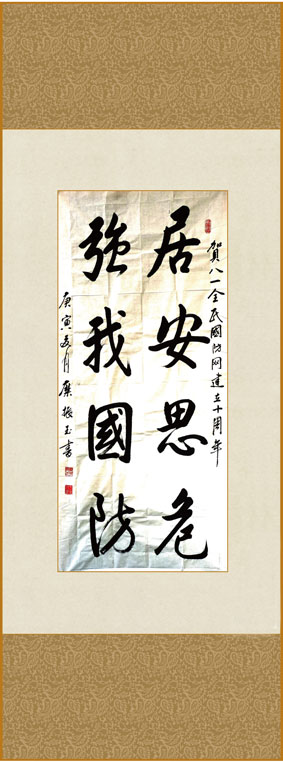 賀八一全民國防网建立十周年
居安思危
強我國防
庚寅五月 振玉書